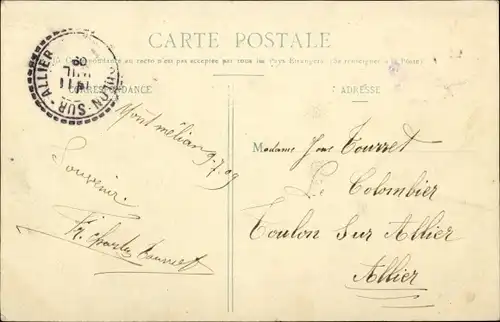 CARTE POSTALE
La Correspondance au recto n'est pas acceptée par tous les Pays Étrangers. (Se renseigner à la Poste)
CORRESPONDANCE
ADRESSE
TOULON-SUR-ALLIER
09
Montmélian
9-7-09
Souvenir.
Madame Tourret
Le Colombier
Toulon sur Allier
Allier